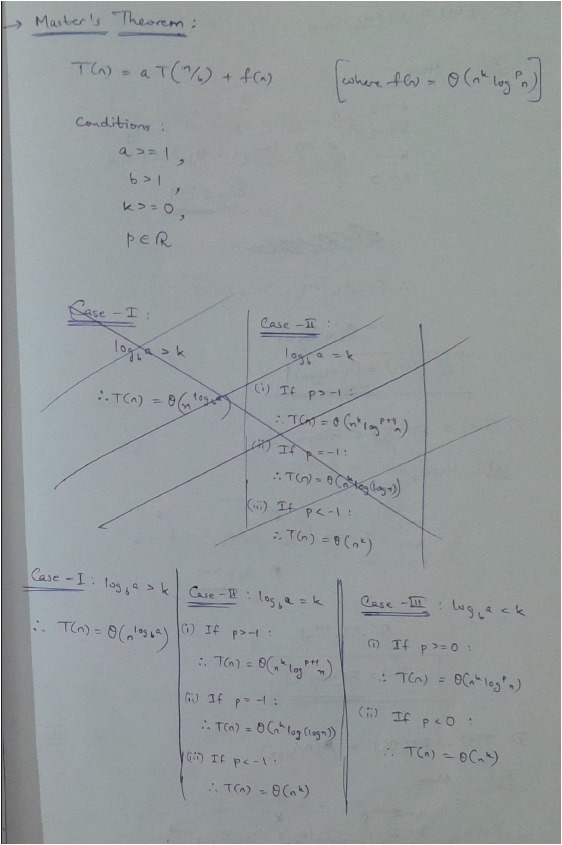 → Master's Theorem :
T(n) = a T(n/b) + f(n) [where f(n) = θ(n^k log^p n)]
Conditions :
a >= 1 ,
b > 1 ,
k >= 0 ,
p ∈ ℝ
Case - I :
log_b a > k
∴ T(n) = θ(n^log_b a)
Case - II :
log_b a = k
(i) If p > -1 :
∴ T(n) = θ(n^k log^p+1 n)
(ii) If p = -1 :
∴ T(n) = θ(n^k log(log n))
(iii) If p < -1 :
∴ T(n) = θ(n^k)
Case - I : log_b a > k
∴ T(n) = θ(n^log_b a)
Case - II : log_b a = k
(i) If p > -1 :
∴ T(n) = θ(n^k log^p+1 n)
(ii) If p = -1 :
∴ T(n) = θ(n^k log(log n))
(iii) If p < -1 :
∴ T(n) = θ(n^k)
Case - III : log_b a < k
(i) If p >= 0 :
∴ T(n) = θ(n^k log^p n)
(ii) If p < 0 :
∴ T(n) = θ(n^k)